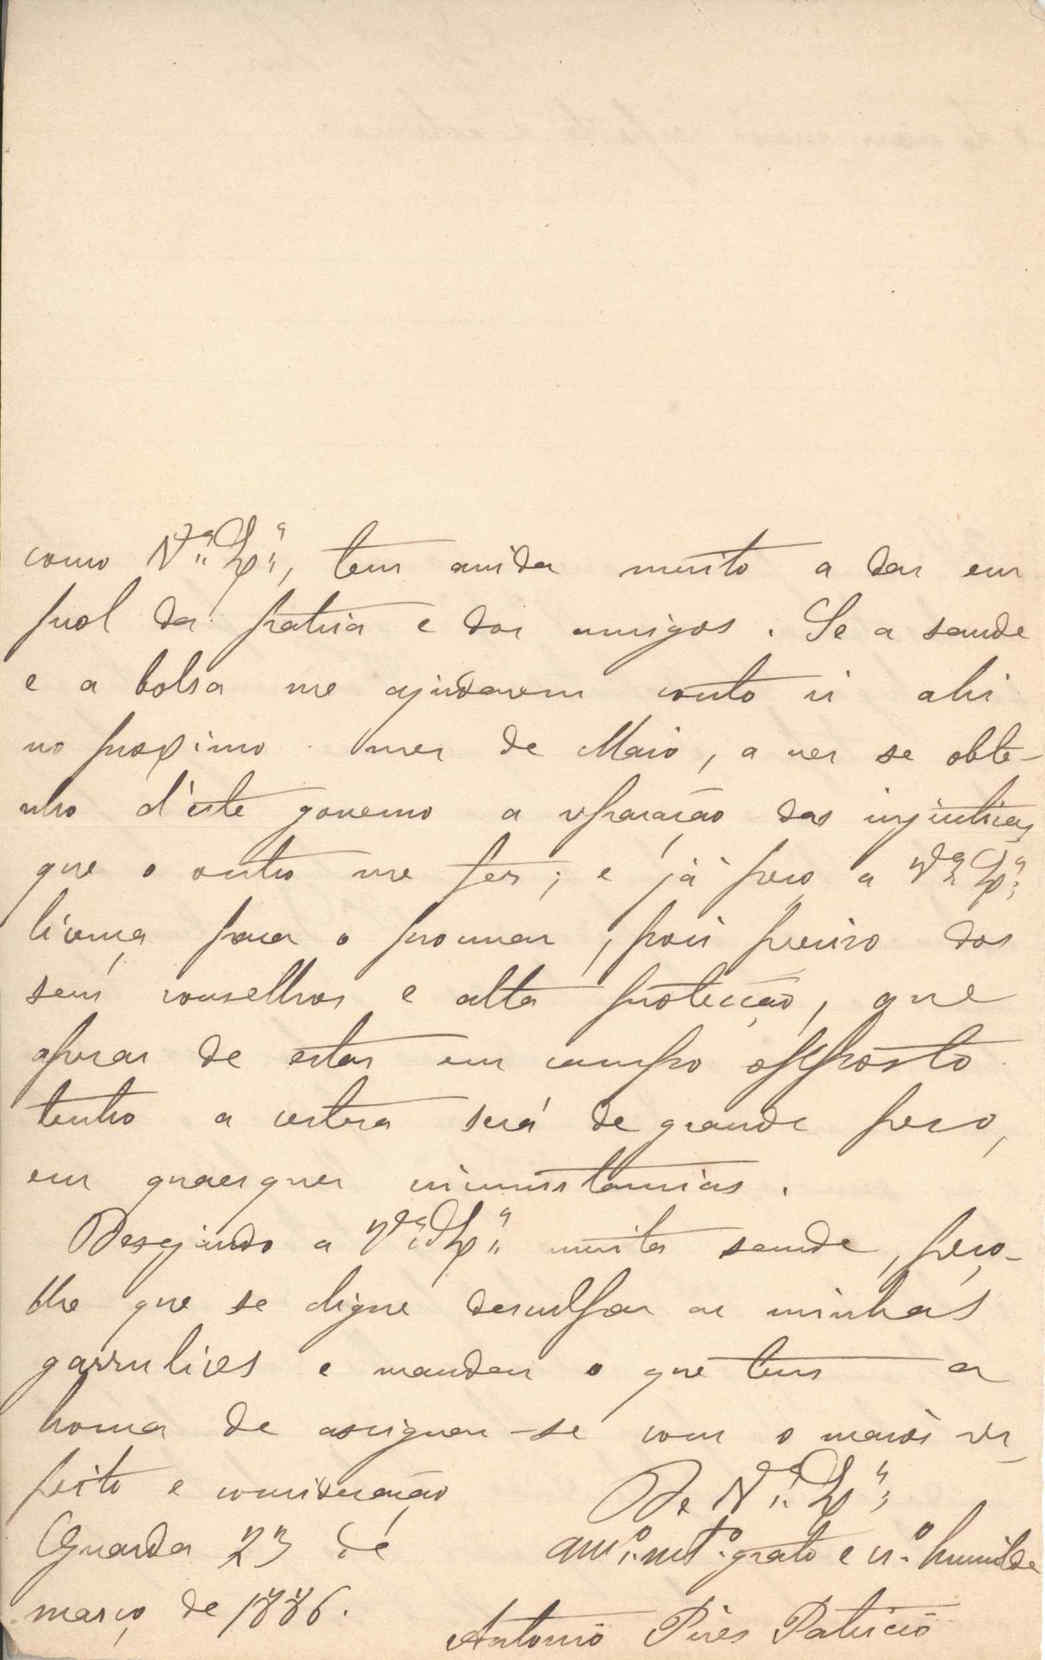 como V.ª Ex.ª, tem ainda muito a dar em
prol da patria e dos amigos. Se a saude
e a bolsa me ajudarem conto ir ahi
no proximo mez de Maio, a ver se obte-
nho d'este governo a reparação das injustiças
que o outro me fez; e já peço a V.ª Ex.ª
licença para o procurar, pois preciso dos
seus conselhos e alta protecção, que
apesar de estar em campo opposto
tenho a certeza será de grande peso,
em quaesquer circumstancias.
Desejando a V.ª Ex.ª muita saude, peço-
lhe que se digne desculpar as minhas
garrulices e mandar o que tem a
honra de assignar-se com o maior res-
peito e consideração
De V.ª Ex.ª
Guarda 23 de
am.º m.t.º grato e cr.º humilde
março de 1886.
Antonio Pires Patricio